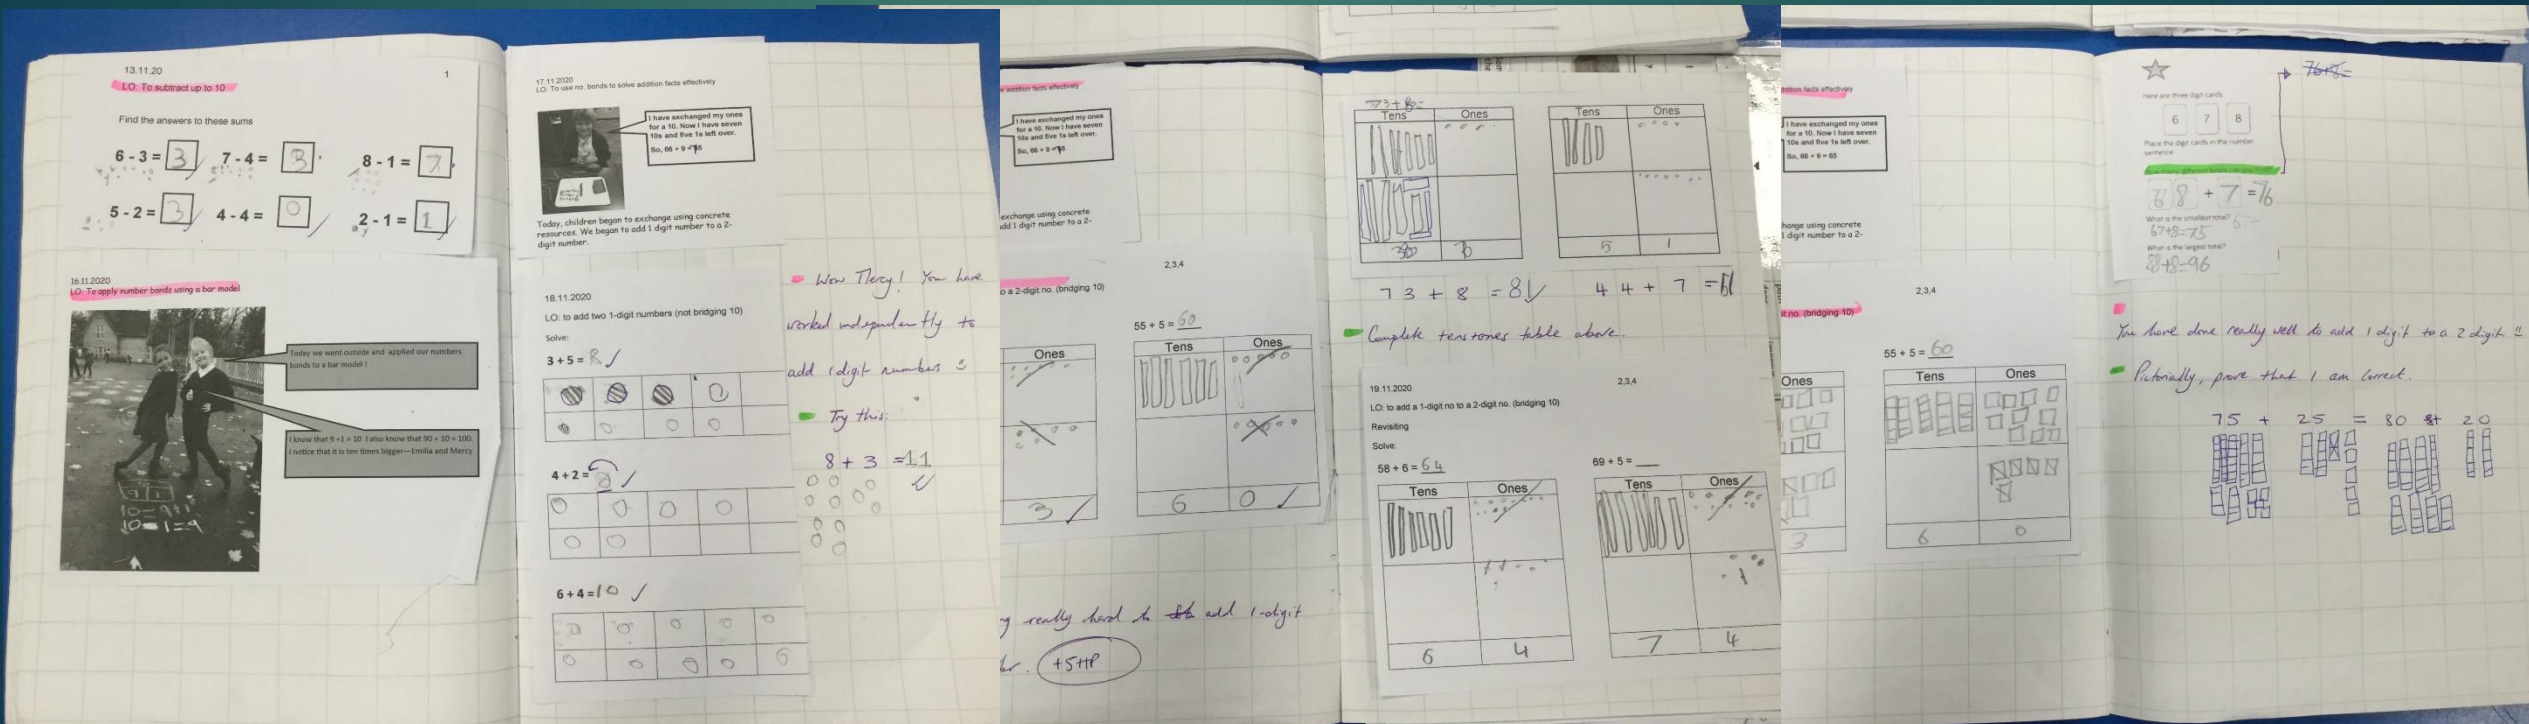 13.11.20
1
LO: To subtract up to 10
Find the answers to these sums
6 - 3 = 3 7 - 4 = 3 8 - 1 = 7
5 - 2 = 3 4 - 4 = 0 2 - 1 = 1
16.11.2020
LO: To apply number bonds using a bar model
Today we went outside and applied our numbers
bonds to a bar model !
I know that 9 +1 = 10 I also know that 90 + 10 = 100.
I notice that it is ten times bigger—Emilia and Mercy
10=9+1
10-1=9
17.11.2020
LO: To use no. bonds to solve addition facts effectively
I have exchanged my ones
for a 10. Now I have seven
10s and five 1s left over.
Today, children began to exchange using concrete
resources. We began to add 1 digit number to a 2-
digit number.
18.11.2020
LO: to add two 1-digit numbers (not bridging 10)
Solve:
3 + 5 = 8
4 + 2 =
6 + 4 = 10
You have
worked independently to
add 1 digit numbers
Try this:
8 + 3 = 11
addition facts effectively
I have exchanged my ones
for a 10. Now I have seven
10s and five 1s left over.
exchange using concrete
add 1 digit number to a 2-
2,3,4
o a 2-digit no. (bridging 10)
55 + 5 = 60
Ones
Tens Ones
3
6 0
really hard to add 1-digit
+5HP
73+8=
Tens Ones
Tens Ones
5 1
73 + 8 = 81
44 + 7 = 51
Complete tens+ones table above.
19.11.2020
2,3,4
LO: to add a 1-digit no to a 2-digit no. (bridging 10)
Revisiting
Solve:
58 + 6 = 64
69 + 5 = __
Tens Ones
Tens Ones
6 4
7 4
addition facts effectively
I have exchanged my ones
for a 10. Now I have seven
10s and five 1s left over.
So, 66 + 9 = 65
hange using concrete
1 digit number to a 2-
2,3,4
it no. (bridging 10)
55 + 5 = 60
Ones
Tens Ones
3
6 0
76+8=
Here are three digit cards.
6 7 8
Place the digit cards in the number
sentence
68 + 7 = 76
What is the smallest total?
67+8=75
What is the largest total?
88+8=96
You have done really well to add 1 digit to a 2 digit
Pictorially, prove that I am correct.
75 + 25 = 80 + 20